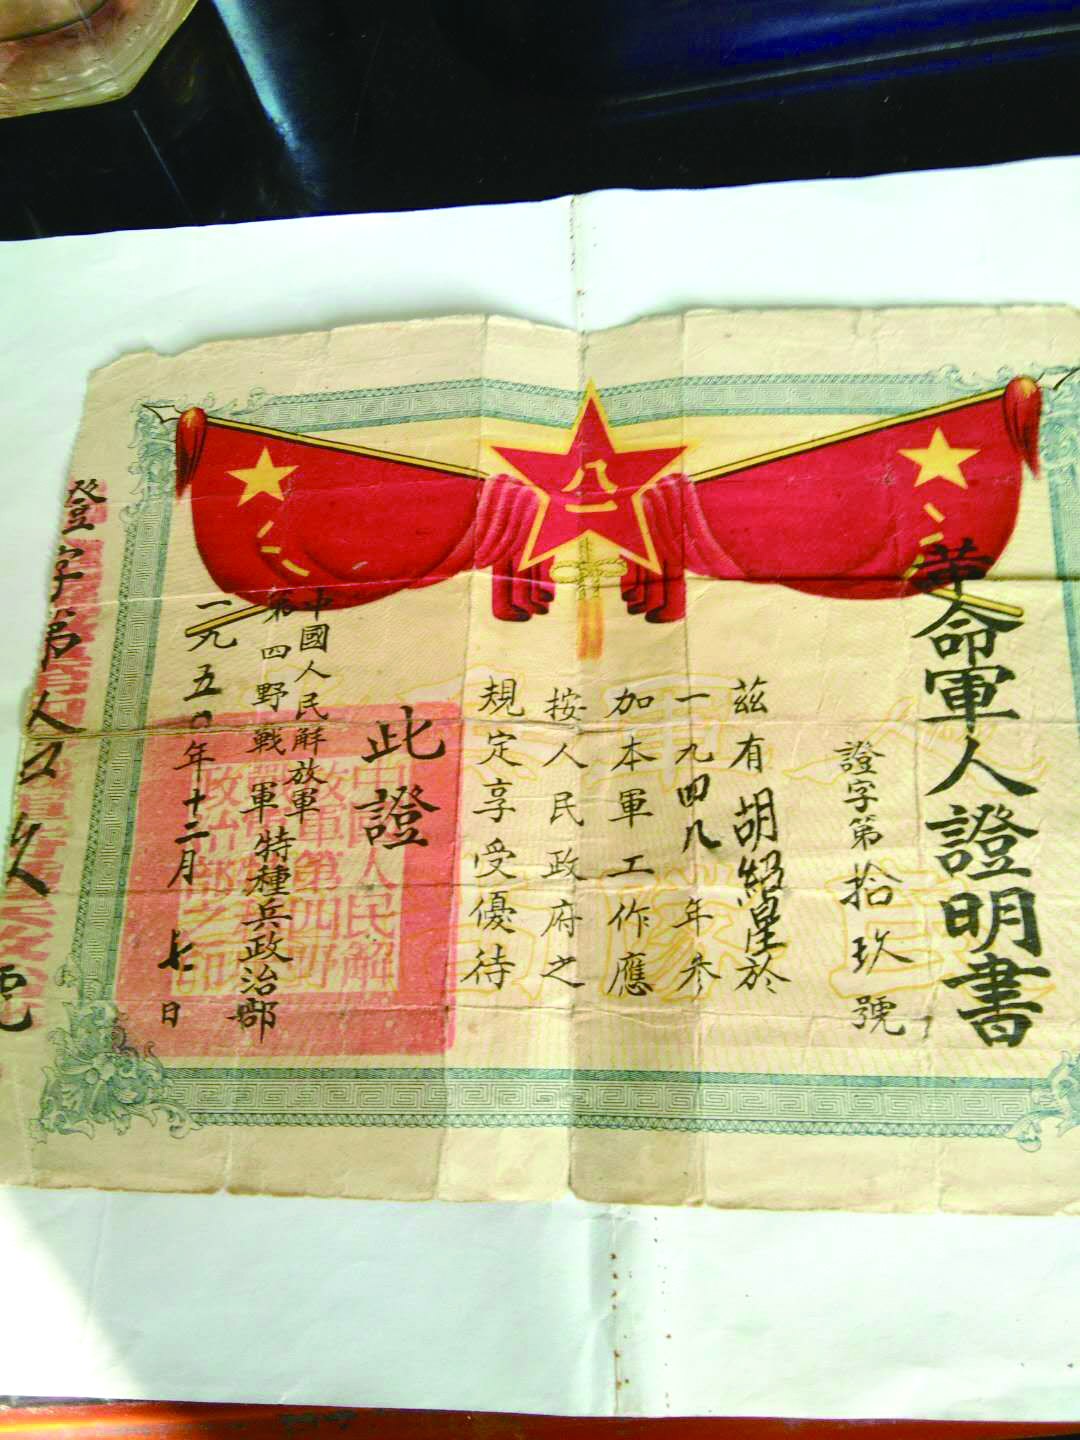 革命軍人證明書
證字第拾玖號
茲有胡紹星於
一九四八年參
加本軍工作應
按人民政府之
規定享受優待
此證
中國人民解放軍
第四野戰軍特種兵政治部
一九五〇年十二月七日
八一
八一
八一
中國人民解
放軍第四野
政治部之印
證字第